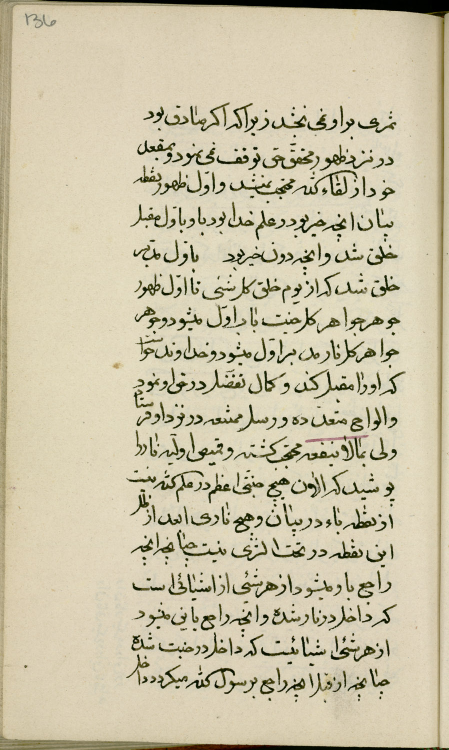 136
ثمری براو نمی بخشد زیرا که اگر صادق بود
در نزد ظهور محقق حق توقف نمی نمود و بمقعد
خود از لقاء الله محتجب نمیشد و اول ظهور نقطه
بیان آنچه خیر بود در علم خدا بود باو باول مقبل
خلق شد و آنچه دون خیر بود باول مدبر
خلق شد که از یوم خلق کل شئی تا اول ظهور
جوهر جواهر کل جنت باب اول میشود و جوهر
جواهر کل نار مدبر اول میشود و خداوند خواست
که او را مقبل کند و کمال تفضل در حق او نمود
و الواح متعدده و رسل ممتنعه در نزد او فرستاد
ولی بما لا ینفعه محتجب گشته و قمیص اولیه نار را
پوشید که الآن هیچ جنتی اعظم در علم الله نیست
از نقطه باء در بیان و هیچ ناری ابعد از ظل
این نقطه در تحت الثری نیست چنانچه آنچه
راجع باو میشود از هر شئی از اشیائی است
که داخل در نار شده و آنچه راجع باین میشود
از هر شئی اشیائیست که داخل در جنت شده
چنانچه از قبل آنچه راجع برسول الله میگردد داخل